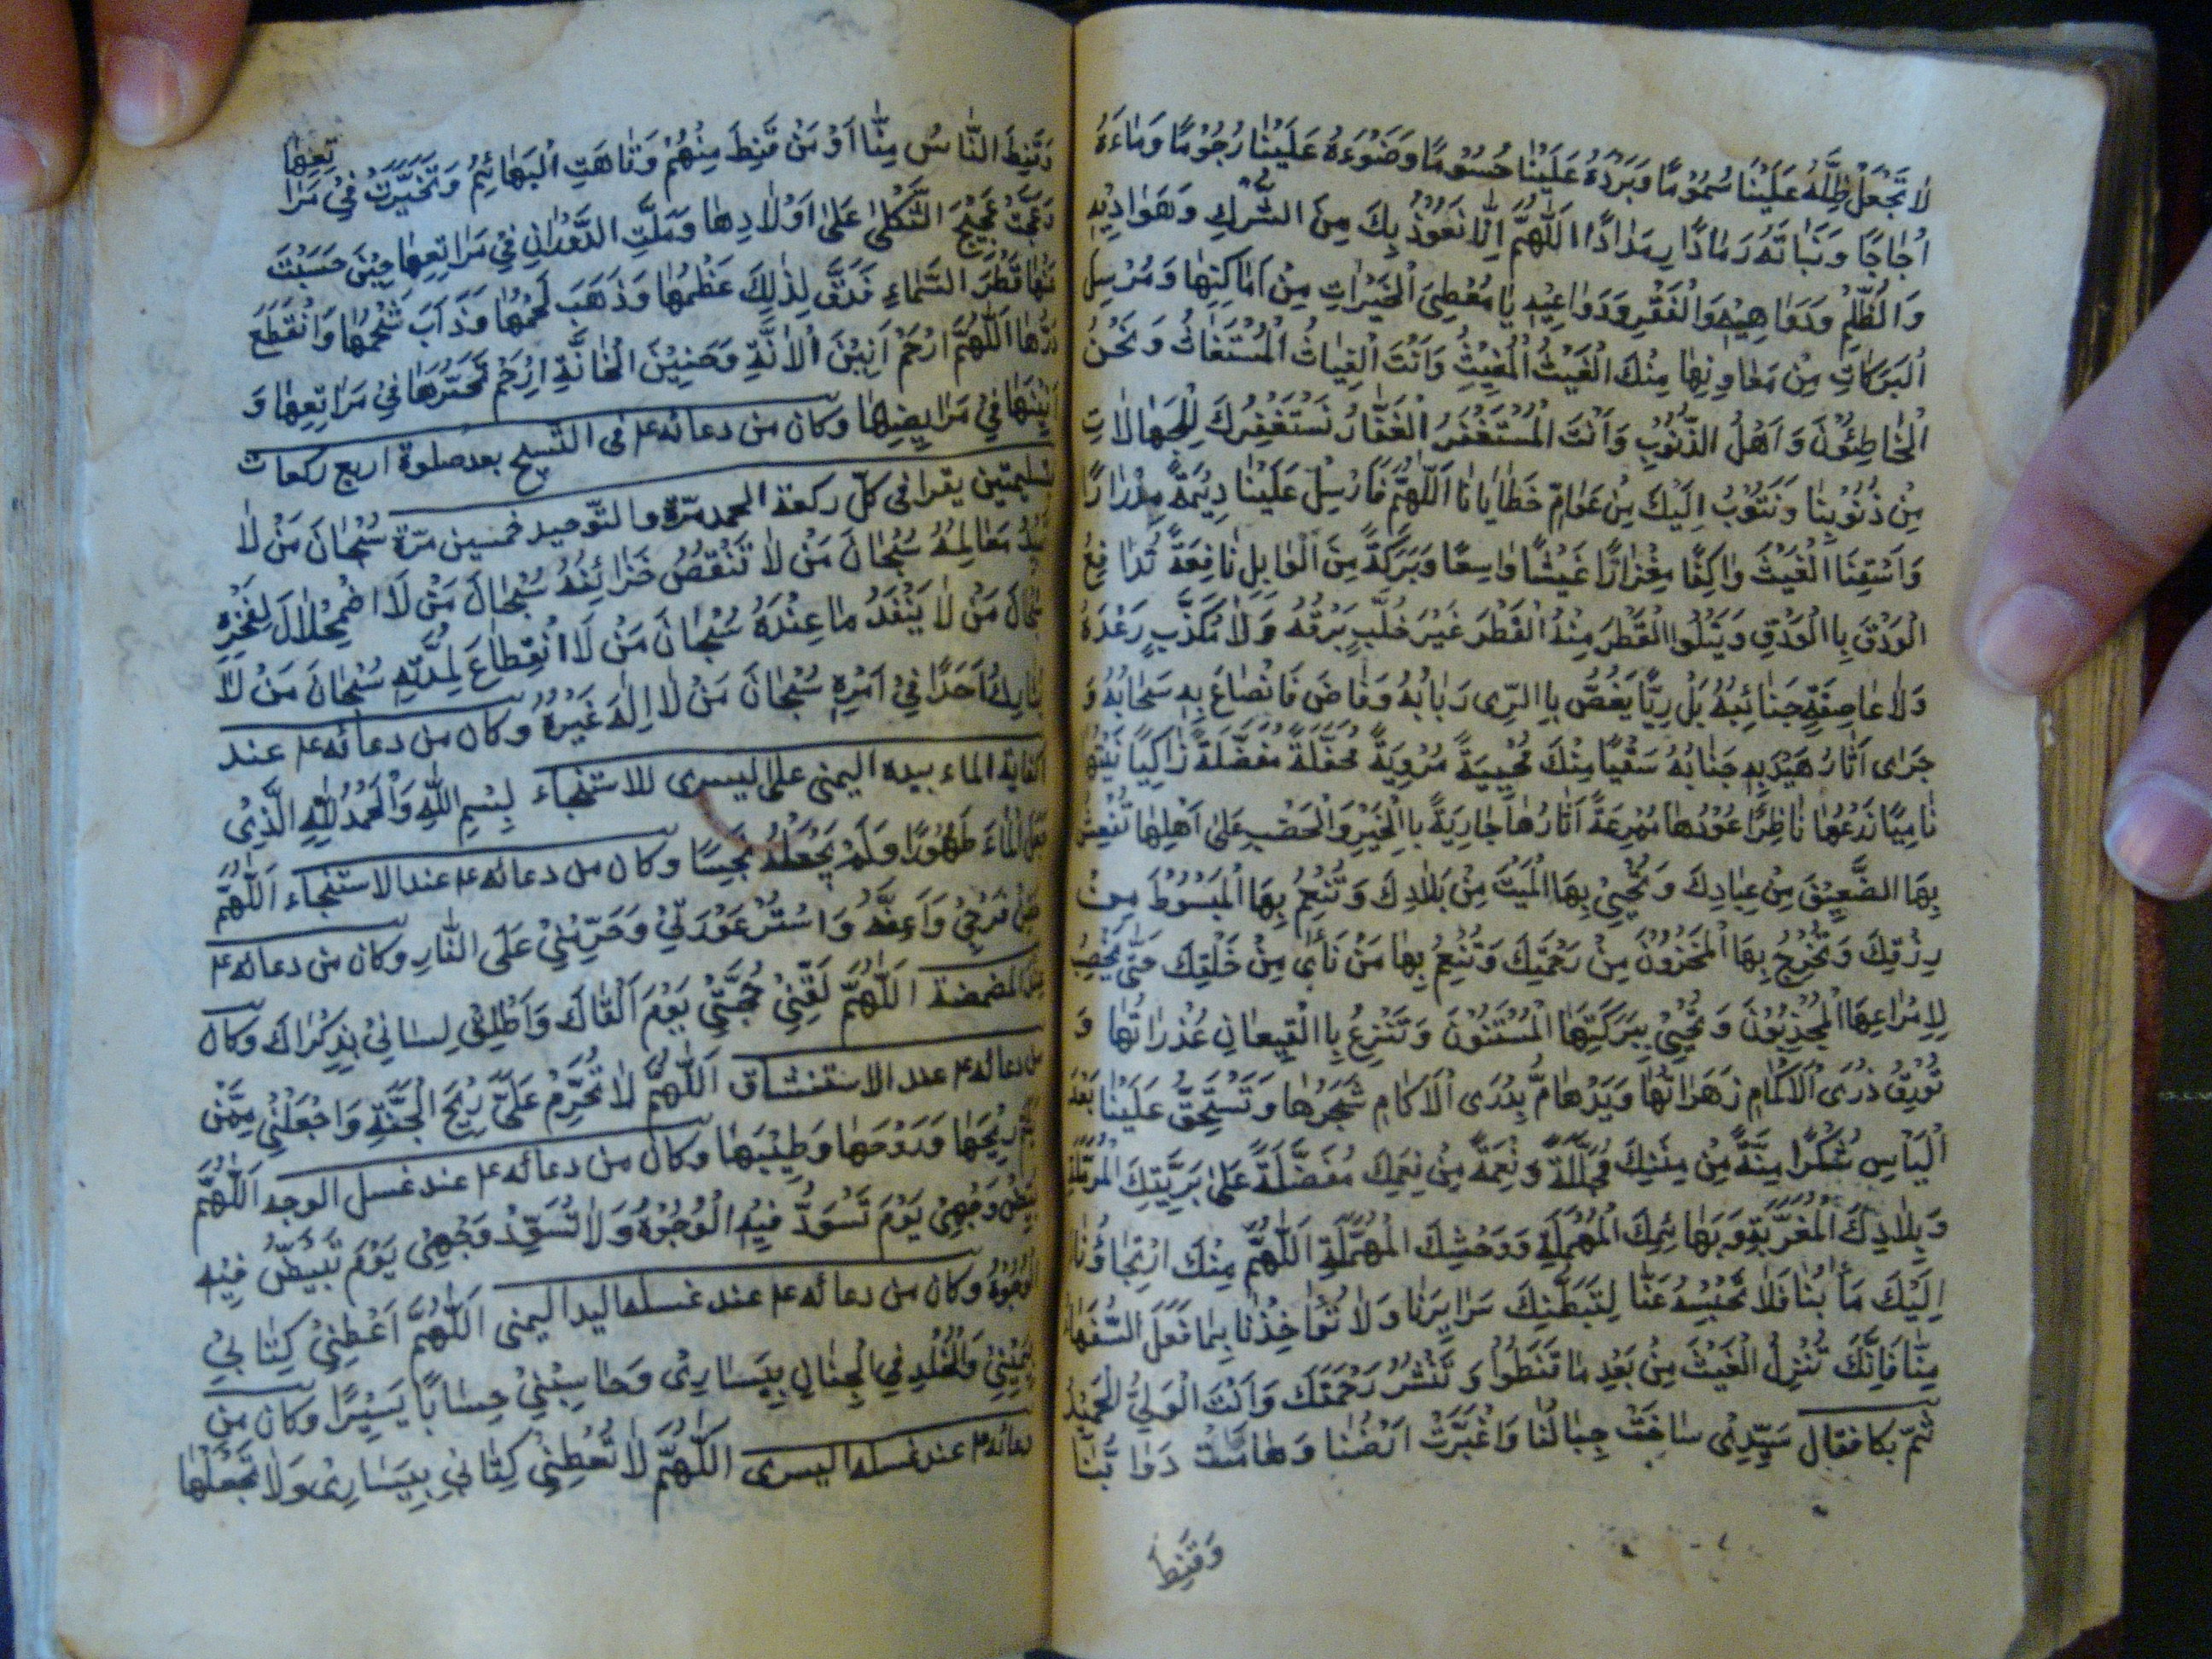 لَا تَجْعَلْ ظِلَّهُ عَلَيْنَا سُمُوْمًا وَبَرْدَهُ عَلَيْنَا حُسُوْمًا وَضَوْءَهُ عَلَيْنَا رُجُوْمًا وَمَاءَهُ
اُجَاجًا وَنَبَاتَهُ رَمَادًا رِمْدَادًا اَللّٰهُمَّ اِنَّا نَعُوْذُ بِكَ مِنَ الشِّرْكِ وَهَوَادِيْهِ
وَالظُّلْمِ وَدَوَاهِيْهِ وَالْفَقْرِ وَدَوَاعِيْهِ يَا مُعْطِيَ الْخَيْرَاتِ مِنْ اَمَاكِنِهَا وَمُرْسِلَ
الْبَرَكَاتِ مِنْ مَعَادِنِهَا مِنْكَ الْغَيْثُ الْمُغِيْثُ وَاَنْتَ الْغِيَاثُ الْمُسْتَغَاثُ وَنَحْنُ
الْخَاطِئُوْنَ وَاَهْلُ الذُّنُوْبِ وَاَنْتَ الْمُسْتَغْفَرُ الْغَفَّارُ نَسْتَغْفِرُكَ لِلْجَهَالَاتِ
مِنْ ذُنُوْبِنَا وَنَتُوْبُ اِلَيْكَ مِنْ عَوَامِّ خَطَايَانَا اَللّٰهُمَّ فَاَرْسِلْ عَلَيْنَا دِيْمَةً مِدْرَارًا
وَاسْقِنَا الْغَيْثَ وَاكِفًا مِغْزَارًا غَيْثًا وَاسِعًا وَبَرَكَةً مِنَ الْوَابِلِ نَافِعَةً تُدَافِعُ
الْوَدْقَ بِالْوَدْقِ وَيَتْلُوا الْقَطْرَ مِنْهُ الْقَطْرَ غَيْرَ خُلَّبٍ بَرْقُهُ وَلَا مُكَذَّبٍ رَعْدُهُ
وَلَا عَاصِفَةٍ جَنَائِبُهُ بَلْ رِيًّا يَغُصُّ بِالرِّى رَبَابُهُ وَفَاضَ فَانْصَاعَ بِهِ سَحَابُهُ وَ
جَرَى اٰثَارُ هَيْدَبِهِ جَنَابَهُ سَقْيًا مِنْكَ مُحْيِيَةً مُرْوِيَةً مُحْفِلَةً مُفْضِلَةً زَاكِيًا نَبْتُهَا
نَامِيًا زَرْعُهَا نَاضِرًا عُوْدُهَا مُمْرِعَةً اٰثَارُهَا جَارِيَةً بِالْخَيْرِ وَالْخِصْبِ عَلٰى اَهْلِهَا تُنْعِشُ
بِهَا الضَّعِيْفَ مِنْ عِبَادِكَ وَتُحْيِيْ بِهَا الْمَيْتَ مِنْ بِلَادِكَ وَتُنْعِمُ بِهَا الْمَبْسُوْطَ مِنْ
رِزْقِكَ وَتُخْرِجُ بِهَا الْمَخْزُوْنَ مِنْ رَحْمَتِكَ وَتُنْعِمُ بِهَا مَنْ نَاٰى مِنْ خَلْقِكَ حَتّٰى يُخْصِبَ
لِاِمْرَاعِهَا الْمُجْدِبُوْنَ وَتُحْيِيْ بِبَرَكَتِهَا الْمُسْنِتُوْنَ وَتَتْرَعُ بِالْقِيْعَانِ غُدْرَانُهَا وَ
تُوْرِقُ ذُرَى الْاٰكَامِ زَهَرَاتُهَا وَيَدْهَامَّ بِذُرَى الْاٰكَامِ شَجَرُهَا وَتَسْتَحِقُّ عَلَيْنَا بَعْدَ
الْيَاْسِ شُكْرًا مِنَّةً مِنْ مِنَنِكَ مُجَلِّلَةً وَنِعْمَةً مِنْ نِعَمِكَ مُفْضِلَةً عَلٰى بَرِيَّتِكَ الْمُرْمِلَةِ
وَبِلَادِكَ الْمُعْرَبَةِ وَبَهَائِمِكَ الْمُهْمَلَةِ وَوَحْشِكَ الْمُهْمَلَةِ اَللّٰهُمَّ مِنْكَ ارْتِجَاؤُنَا
اِلَيْكَ مَاٰبُنَا فَلَا تَحْبِسْهُ عَنَّا لِتَبَطُّنِكَ سَرَايِرَنَا وَلَا تُؤَاخِذْنَا بِمَا فَعَلَ السُّفَهَاءُ
مِنَّا فَاِنَّكَ تُنْزِلُ الْغَيْثَ مِنْ بَعْدِ مَا قَنَطُوْا وَتَنْشُرُ رَحْمَتَكَ وَاَنْتَ الْوَلِيُّ الْحَمِيْدُ
ثُمَّ بكا فقال سَيِّدِيْ سَاخَتْ جِبَالُنَا وَاغْبَرَّتْ اَرْضُنَا وَهَامَتْ دَوَابُّنَا
وَقَنِطَ
وَقَنِطَ النَّاسُ مِنَّا اَوْ مَنْ قَنِطَ مِنْهُمْ وَتَاهَتِ الْبَهَائِمُ وَتَحَيَّرَتْ فِيْ مَرَا
تِعِهَا
وَعَجَّتْ عَجِيْجَ الثَّكْلٰى عَلٰى اَوْلَادِهَا وَمَلَّتِ الدَّوَرَانَ فِيْ مَرَاتِعِهَا حِيْنَ حَبَسْتَ
عَنْهَا قَطْرَ السَّمَاءِ فَدَقَّ لِذٰلِكَ عَظْمُهَا وَذَهَبَ لَحْمُهَا وَذَابَ شَحْمُهَا وَانْقَطَعَ
دَرُّهَا اَللّٰهُمَّ ارْحَمْ اَنِيْنَ الْاٰنَّةِ وَحَنِيْنَ الْحَانَّةِ ارْحَمْ تَحَيُّرَهَا فِيْ مَرَاتِعِهَا وَ
اَنِيْنَهَا فِيْ مَرَابِضِهَا وكان من دعائه ع فى التسبيح بعد صلوة اربع ركعات
بتسليمتين يقرا فى كلّ ركعة الحمد مرّة والتّوحيد خمسين مرّة سُبْحَانَ مَنْ لَا
تَبِيْدُ مَعَالِمُهُ سُبْحَانَ مَنْ لَا تَنْقُصُ خَزَائِنُهُ سُبْحَانَ مَنْ لَا اضْمِحْلَالَ لِفَخْرِهِ
سُبْحَانَ مَنْ لَا يَنْفَدُ مَا عِنْدَهُ سُبْحَانَ مَنْ لَا انْقِطَاعَ لِمُدَّتِهِ سُبْحَانَ مَنْ لَا
يُشَارِكُ اَحَدًا فِيْ اَمْرِهِ سُبْحَانَ مَنْ لَا اِلٰهَ غَيْرُهُ وكان من دعائه ع عند
اكفاية الماء بيده اليمنى على اليسرى للاستنجاء بِسْمِ اللّٰهِ وَالْحَمْدُ لِلّٰهِ الَّذِيْ
جَعَلَ الْمَاءَ طَهُوْرًا وَلَمْ يَجْعَلْهُ نَجِسًا وكان من دعائه ع عند الاستنجاء اَللّٰهُمَّ
حَصِّنْ فَرْجِيْ وَاَعِفَّهُ وَاسْتُرْ عَوْرَتِيْ وَحَرِّمْنِيْ عَلَى النَّارِ وكان من دعائه ع
عند المضمضة اَللّٰهُمَّ لَقِّنِيْ حُجَّتِيْ يَوْمَ اَلْقَاكَ وَاَطْلِقْ لِسَانِيْ بِذِكْرَاكَ وكان
من دعائه ع عند الاستنشاق اَللّٰهُمَّ لَا تُحَرِّمْ عَلَيَّ رِيْحَ الْجَنَّةِ وَاجْعَلْنِيْ مِمَّنْ
يَشُمُّ رِيْحَهَا وَرَوْحَهَا وَطِيْبَهَا وكان من دعائه ع عند غسل الوجه اَللّٰهُمَّ
بَيِّضْ وَجْهِيْ يَوْمَ تَسْوَدُّ فِيْهِ الْوُجُوْهُ وَلَا تُسَوِّدْ وَجْهِيْ يَوْمَ تَبْيَضُّ فِيْهِ
الْوُجُوْهُ وكان من دعائه ع عند غسله اليد اليمنى اَللّٰهُمَّ اَعْطِنِيْ كِتَابِيْ
بِيَمِيْنِيْ وَالْخُلْدَ فِي الْجِنَانِ بِيَسَارِيْ وَحَاسِبْنِيْ حِسَابًا يَسِيْرًا وكان من
دعائه ع عند غسله اليسرى اَللّٰهُمَّ لَا تُعْطِنِيْ كِتَابِيْ بِيَسَارِيْ وَلَا تَجْعَلْهَا